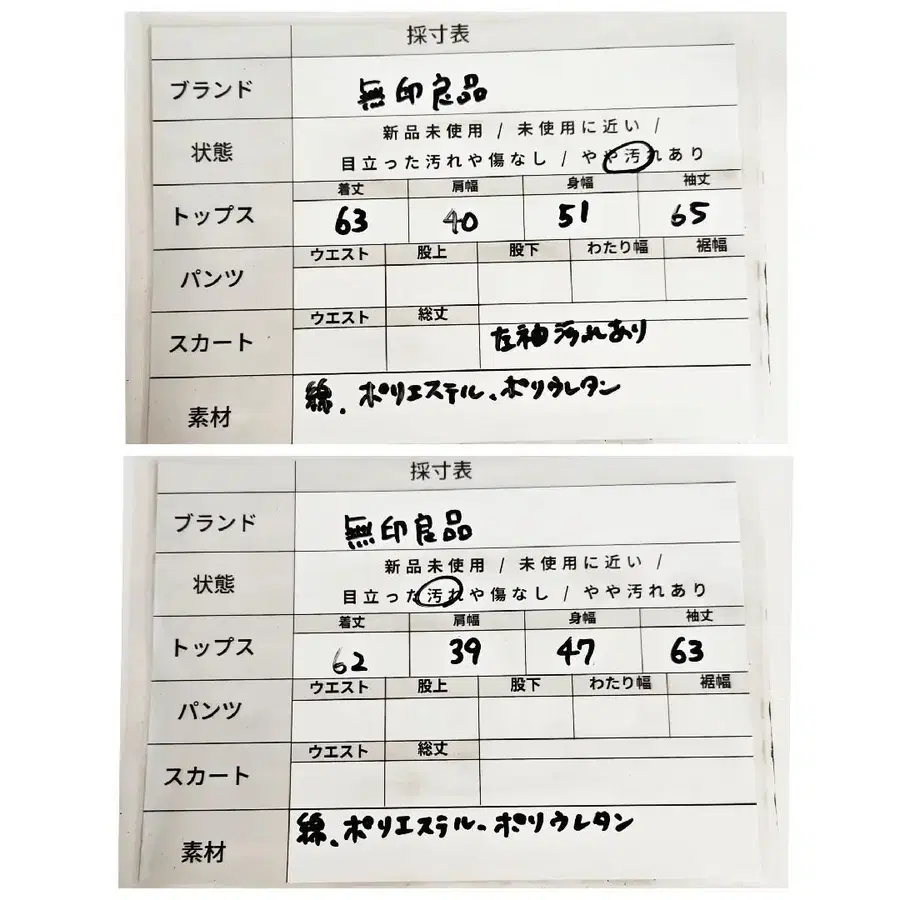 採寸表
ブランド 無印良品
状態 新品未使用 / 未使用に近い /
目立った汚れや傷なし / やや汚れあり
着丈 肩幅 身幅 袖丈
トップス 63 40 51 65
ウエスト 股上 股下 わたり幅 裾幅
パンツ
ウエスト 総丈
スカート 左袖汚れあり
素材 綿、ポリエステル、ポリウレタン
採寸表
ブランド 無印良品
状態 新品未使用 / 未使用に近い /
目立った汚れや傷なし / やや汚れあり
着丈 肩幅 身幅 袖丈
トップス 62 39 47 63
ウエスト 股上 股下 わたり幅 裾幅
パンツ
ウエスト 総丈
スカート
素材 綿、ポリエステル、ポリウレタン